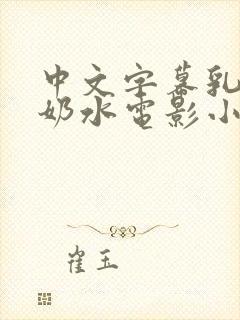 中文字幕乳
奶水电影小
崔玉